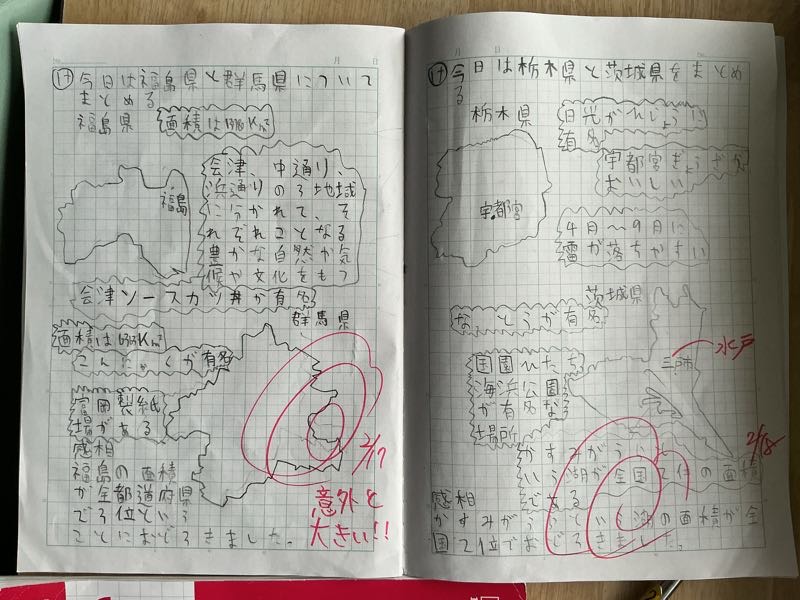 け 今日は福島県と群馬県について
まとめる
福島県
面積は
会津、中通り、
浜通りの3地域
に分かれて、そ
れぞれことなる
豊かな自然や気
候や文化をもつ
福島
会津ソースカツ丼が有名
群馬県
面積は
こんにゃくが有名
富岡製紙
場がある
感相
福島の面積
が全都道府県
で3位という
ことにおどろきました。
2/17
意外と
大きい!!
け 今日は栃木県と茨城県をまとめ
る
栃木県
日光がひじょうに
有名
宇都宮ぎょうざが
おいしい
宇都宮
4月〜9月に
雷が落ちやすい
茨城県
なっとうが有名
三戸市
水戸
国園ひたち
海浜公園
が有名な
場所
かすみがうら
いう湖が全国2位の面積
である
2/18
感相
かすみがうらという湖の面積が全
国2位でおどろきました。